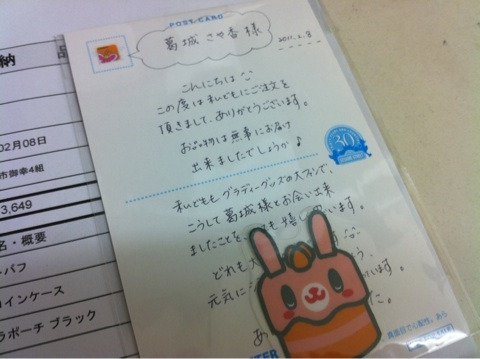 納
品
02月08日
市御幸4組
3,649
名・概要
パフ
コインケース
ラポーチ ブラック
POST CARD
葛城 さや香 様
2011.2.8
こんにちは
この度は私どもにご注文を
頂きまして、ありがとうございます。
お品物は無事にお届け
出来ましたでしょうか♪
30
私どもも、グラディーグッズの大ファンで、
こうして葛城様とお会い出来
ましたことを、
嬉し
います。
どれも大
元気に
います。
あ
た。